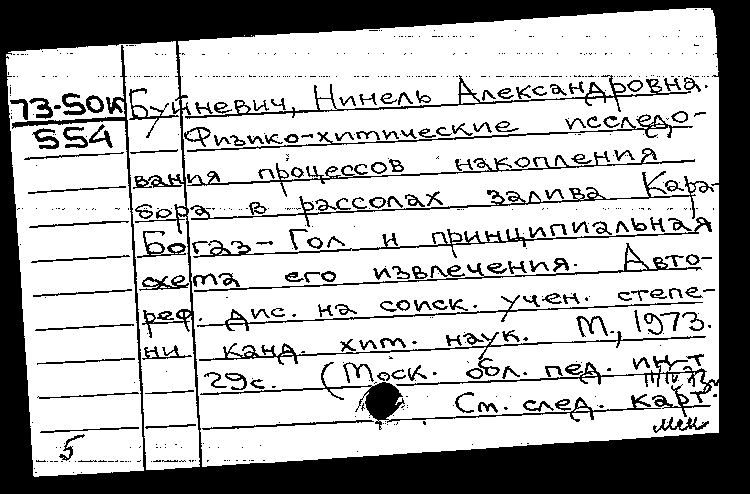 73-50к
554
Буйневич, Нинель Александровна.
Физико-химические исследо-
вания процессов накопления
бора в рассолах залива Кара-
Богаз-Гол и принципиальная
схема его извлечения. Авто-
реф. дис. на соиск. учен. степе-
ни канд. хим. наук. М., 1973.
29с. (Моск. обл. пед. ин-т
См. след. карт.
5